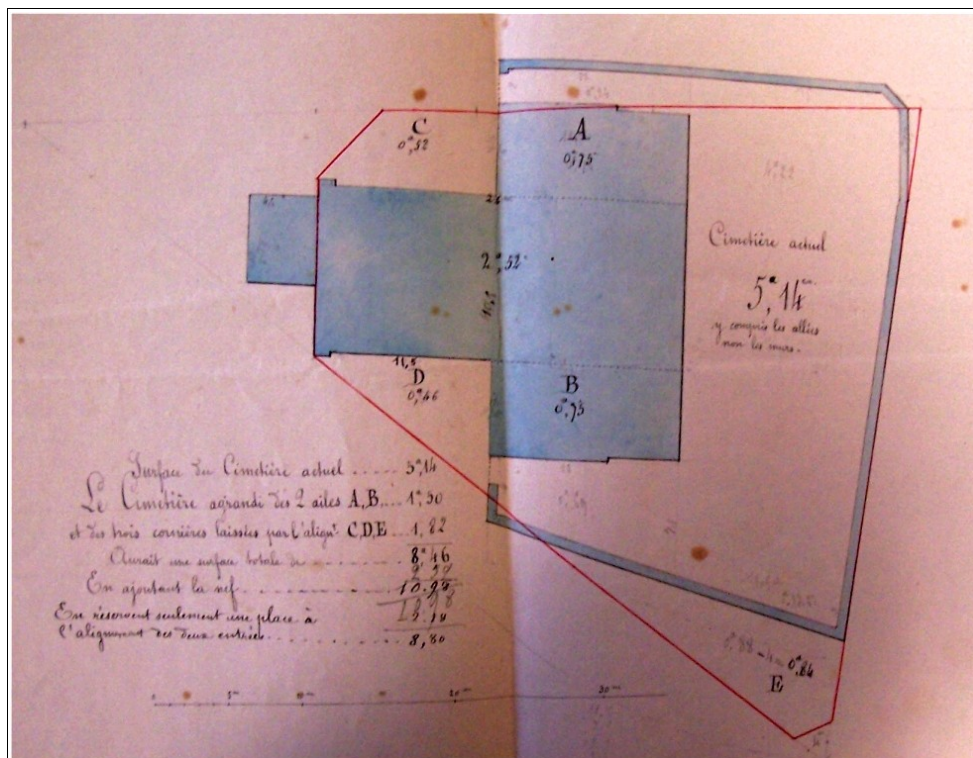 C
0ᵃ,52
A
0ᵃ,75
4ᵃ22
Cimetière actuel
5ᵃ,14ᶜᵃ
y compris les allées
non les murs.
2ᵃ,52
11,5
D
0ᵃ,46
B
0ᵃ,75
Surface du Cimetière actuel ..... 5ᵃ,14
Le Cimetière agrandi des 2 ailes A,B.... 1ᵃ,50
et des trois corrières laissées par l'alignᵗ C,D,E... 1,82
Aurait une surface totale de ...... 8ᵃ,46
2,52
En ajoutant la nef. ........ 10.98
10,98
En réservent seulement une place à
l'alignement des deux entrées........ 8,80
0ᵃ,84
E
0 5ᵐ 10ᵐ 20ᵐ 30ᵐ